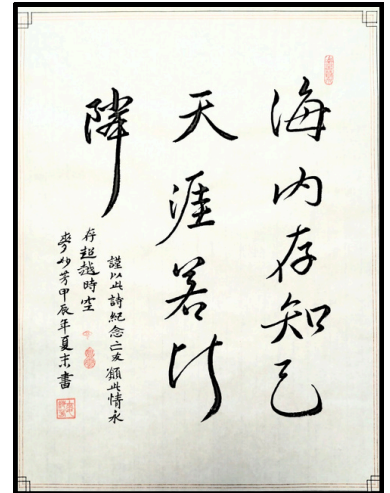 海内存知己
天涯若比
隣
謹以此詩紀念亡友願此情永
存超越時空
芳甲辰年夏末書